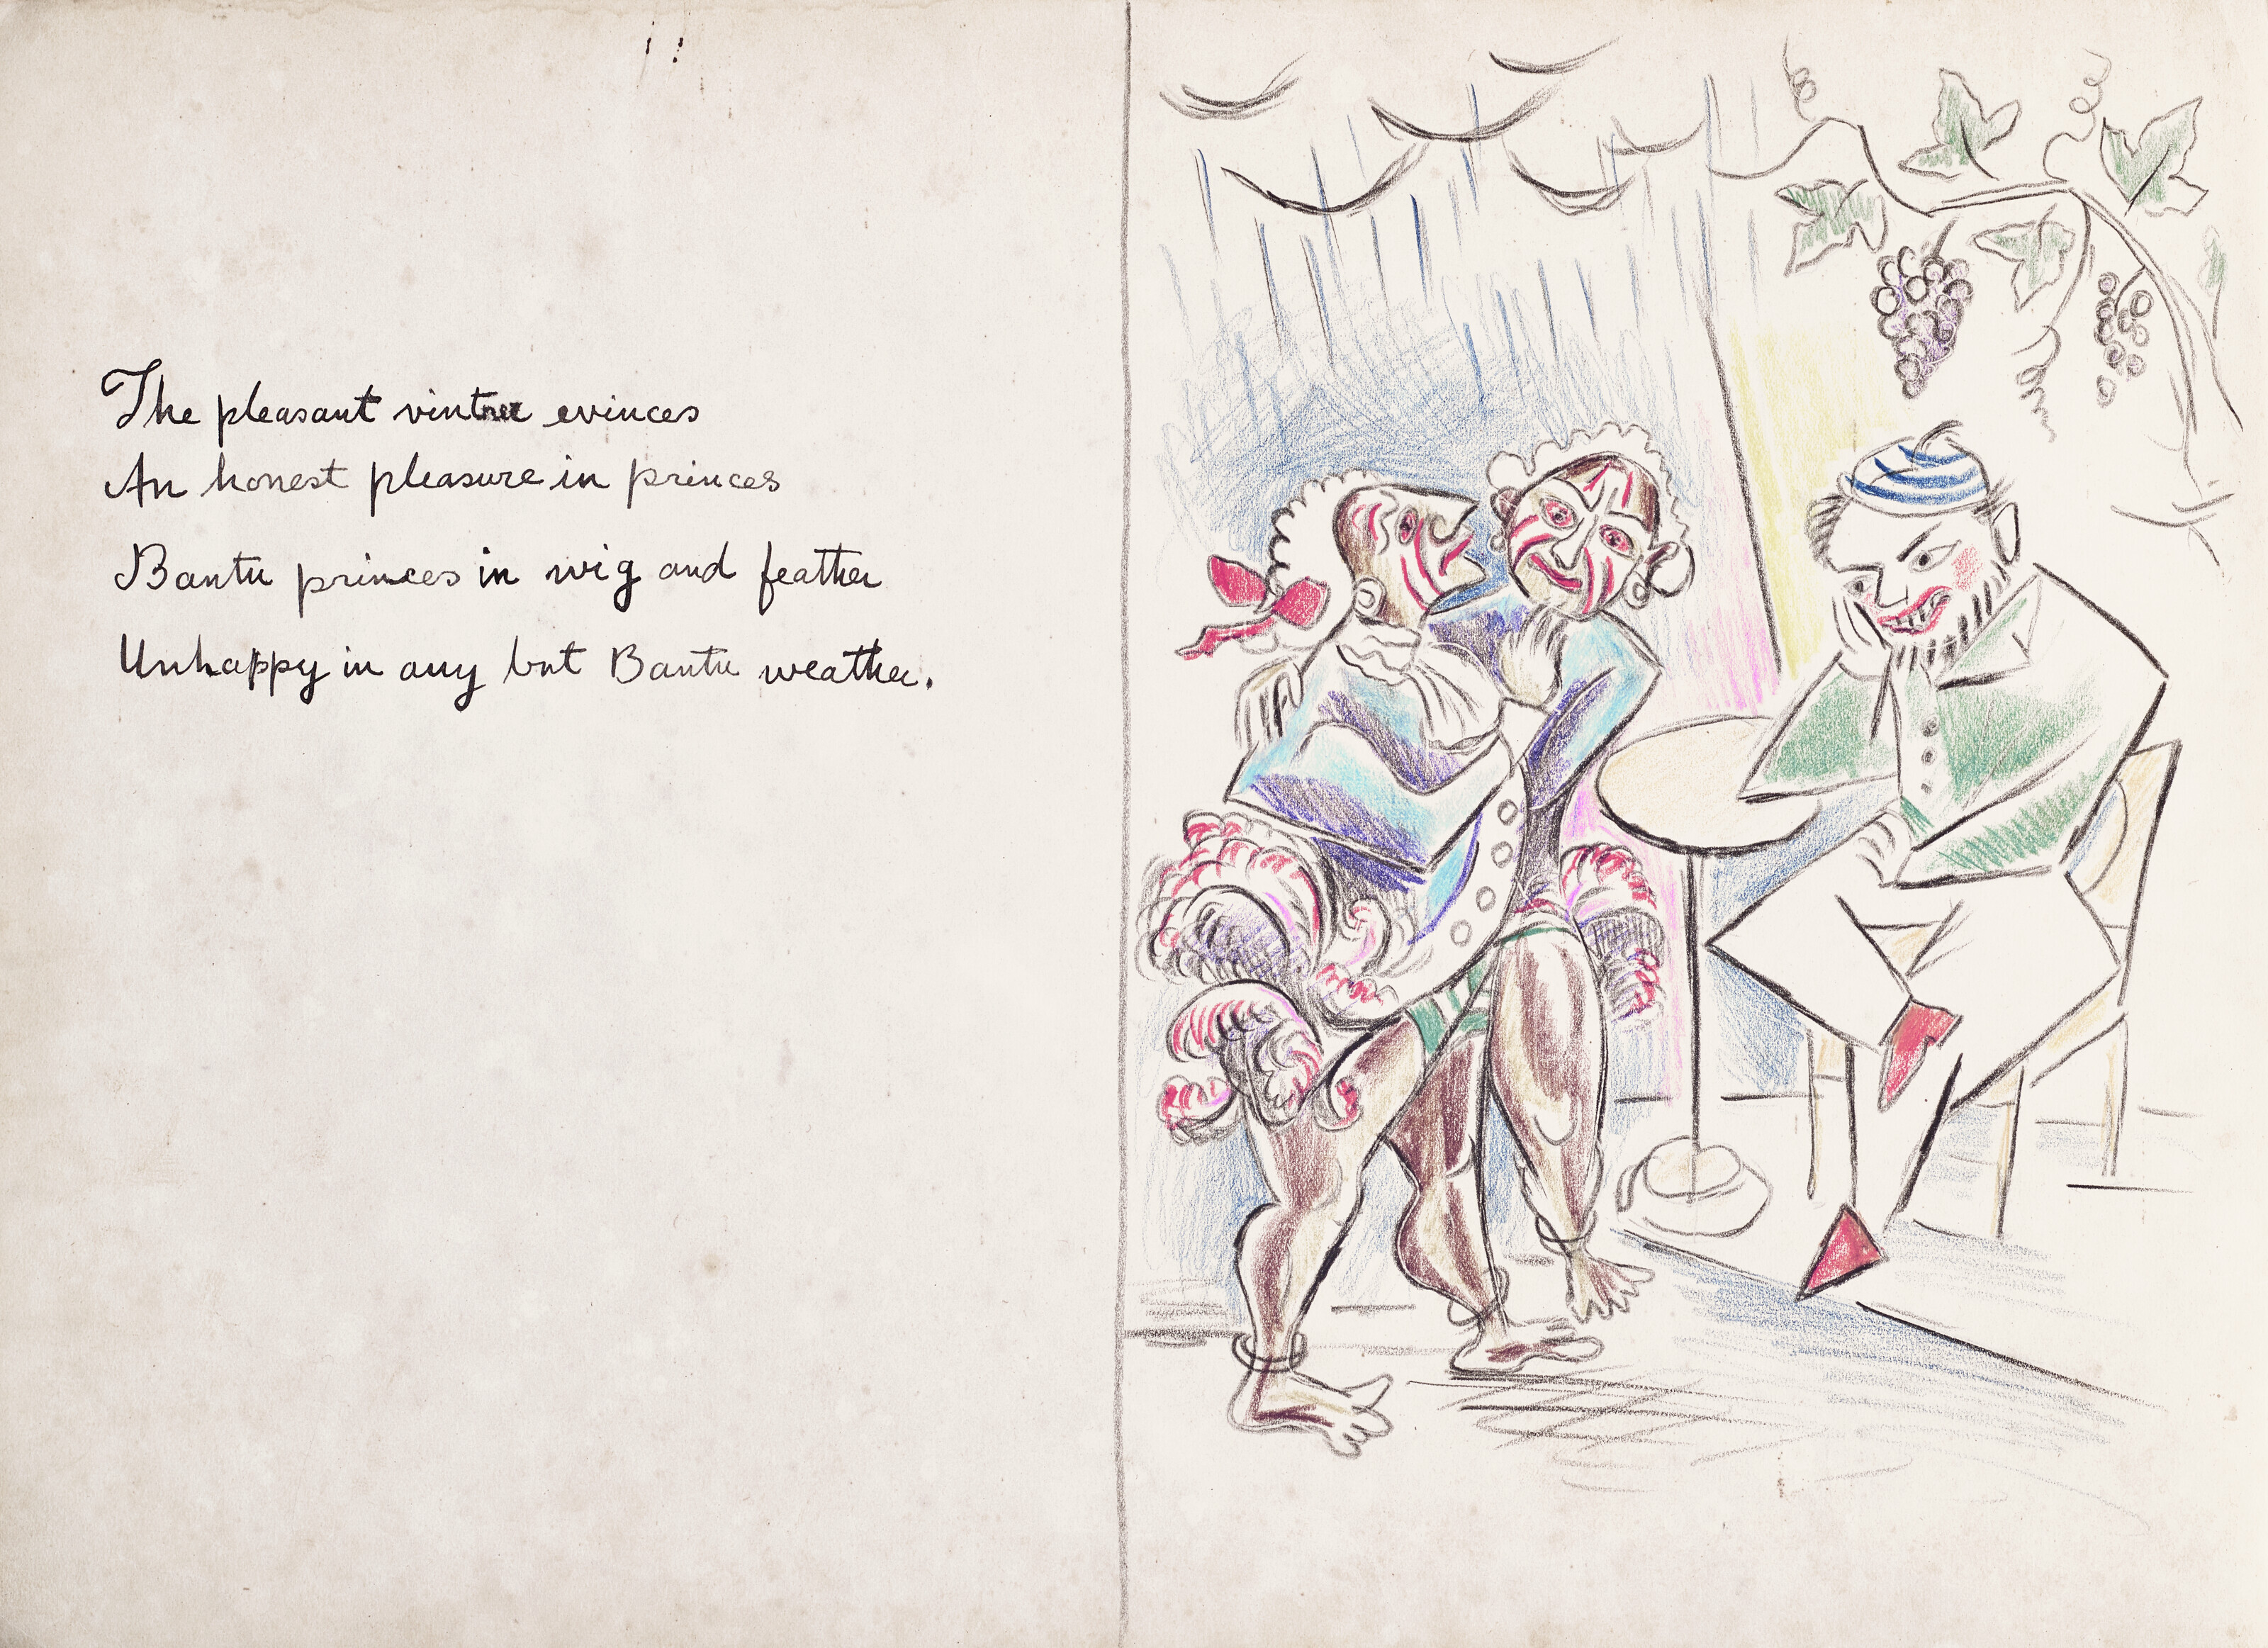 The pleasant vintner evinces
An honest pleasure in princes
Bantu princes in wig and feather
Unhappy in any but Bantu weather.